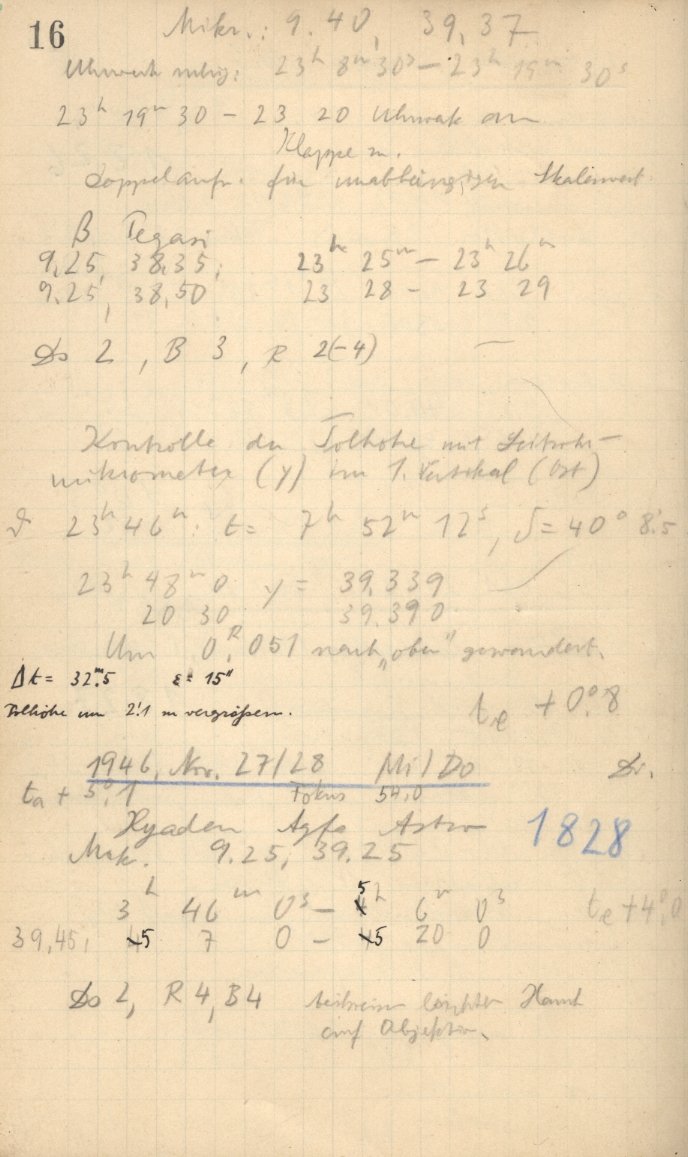 16
Mikr.: 9.40, 39,37
Uhrwerk ruhig: 23h 8m 30s – 23h 19m 30s
23h 19m 30 – 23 20 Uhrwerk an
Klappe zu.
Doppelaufn. für unabhängigen Skalenwert.
β Pegasi
9,25, 38,35; 23h 25m – 23h 26m
9.25, 38,50 23 28 – 23 29
Ds 2, B 3, R 2(–4)
Kontrolle der Polhöhe mit Leitrohr-
mikrometer (y) im 1. Vertikal (Ost)
23h 46m: t = 7h 52m 12s, δ = 40° 8'.5
23h 48m 0 y = 39,339
20 30 39,390
Um 0R,051 nach „oben" gewandert.
Δt = 32m.5 ε = 15"
Polhöhe um 2'.1 zu vergrößern.
te + 0°.8
1946, Nov. 27/28 Mi/Do Dr.
ta + 5°.1 Fokus 54,0
Hyaden Agfa Astro 1828
Mikr. 9.25, 39.25
3h 46m 0s – 5h 6m 0s te + 4°.0
39,45; 5 7 0 – 5 20 0
Ds 2, R 4, B 4 teilweise Hand
auf Objektiv.